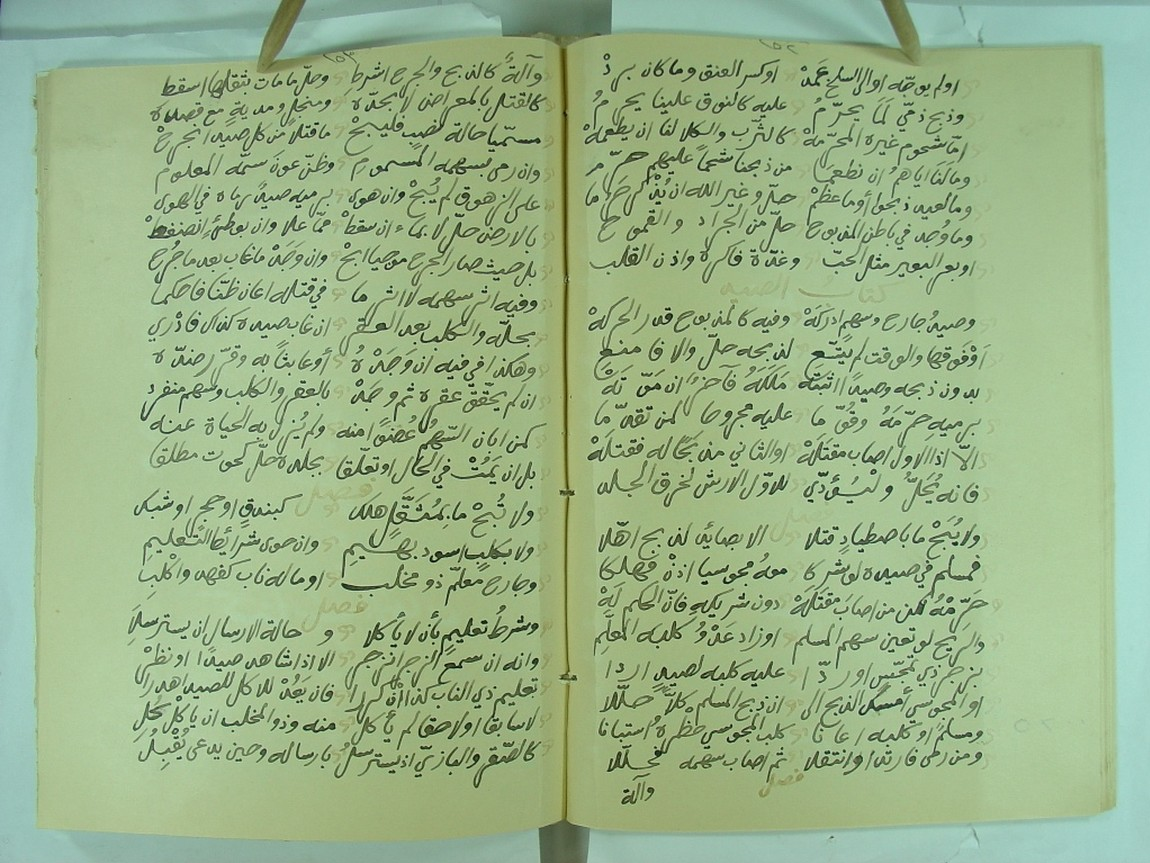 اولم يوجه اوالى السلخ عمد اوكسر العنق وما كان برد
وذبح ذمي لما يحرم عليه كالنوق علينا يحرم
اما شحوم غيره المحرمة كالثرب والكلا لنا ان يطعمه
وما لنا اياهم ان نطعما من ذبحنا شحما عليهم حرما
وما لعيد ذبحوا أوما عظم حل وغير الله ان يذكر
وما وجد في باطن المذبوح حل من الجراد والقموح
اوبعر البعير مثل الحب وغدة فاكره واذن القلب
كتاب الصيد
وصيد جارح وسهم ادركه وفيه كالمذبوح قدر الحركه
اوفوقها والوقت لم يتسع لذبحه حل والا فامنع
بدون ذبحه وصيدا اثبته ملكه
برميه حرمه وقوما عليه مجروحا لمن تقدما
الا اذا الاول اصاب مقتله اوالثاني من كماله فقتله
فانه محل وليؤدي للاول الارش لخرق الجلد
فصل
ولا يبح ما باصطياد قتلا الا بصائد لذبح اهلا
فمسلم في صيده لو شركا معه مجوسيا اذن فهلكا
حرمه لكن من اصاب مقتله دون شريكه فان الحكم له
والريح لو تعين سهم المسلم اوزاد عدو كلبه المعلم
بزجر ذي تمجس اوردا عليه كلبه لصيد اردا
او المجوسي أمسك الذبح الى ان ذبح المسلم كلا حللا
ومسلما او كلبه اعانا كلب المجوسي حظره استبانا
ومن رمى فارتد اوانتقلا ثم اصاب سهمه محللا
فصل
وآلة
وآلة كالذبح والجرح اشرط وحل ما مات بثقلها اسقط
كالقتل بالمعراض لا بحده ومنجل ومدية مع قصده
مسميا حالة نصب فليبح ما قتلا من كل صيد انجرح
وان رمى بسهمه المسموم وظن عون سمه المعلوم
على الزهوق لم يبح وان هوى برميه صيد رماه في الهوى
بالارض حل لا بماء ان سقط مما علا وان بوطئ انضغط
بل حيث صار الجرح موحيا ابح وان وجد ما غاب بعد ما جرح
وفيه اثر سهمه لا اثر ما في قتله اعان ظنا فاحكما
بحله والكلب بعد العقر ان غاب صيده كذاك فادري
وهكذا في فيه ان وجده أوعابثا به وقر رضده
ان لم يحقق عقره ثم وجد بالعقر والكلب وسهم منفرد
كمن ابان السهم عضوا منه ولم يزل به الحياة عنه
بل ان يمت في الحال اوتعلقا بجلده حل كحوت مطلقا
فصل
ولا تبح ما بمثقل هلك كبندق او حجر او شبك
ولا بكلب اسود بهيم وان حوى شرائط التعليم
وجارح معلم ذو مخلب اوماله ناب كفهد واكلب
فصل
وشرط تعليم بأن لا يأكلا وحالة الارسال ان يسترسلا
وانه ان سمع الزجر انزجر الا اذا شاهد صيدا اونظر
تعليم ذي الناب كذا ان كررا فان يعد للاكل للصيد اهدرا
لا سابقا اولاحقا لم يأكل منه وذو المخلب ان يأكل يحل
كالصقر والبازي اذ يسترسل بارساله وحين يدعى يقبل